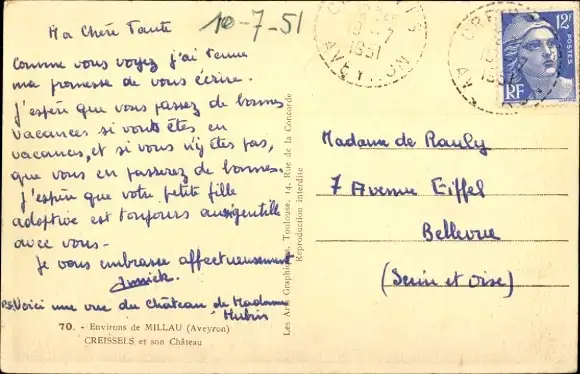 10-7-51
Ma Chère Tante
Comme vous voyez j'ai tenue
ma promesse de vous écrire.
J'espère que vous passez de bonnes
vacances si vous êtes en
vacances, et si vous n'y êtes pas,
que vous en passerez de bonnes.
J'espère que votre petite fille
adoptive est toujours aussi gentille
avec vous-
Je vous embrasse affectueusement
Annick.
P.S. Voici une vue du château de Madame
Hubin
70. - Environs de MILLAU (Aveyron)
CREISSELS et son Château
Les Arts Graphiques, Toulouse, 14, Rue de la Concorde
Reproduction interdite
1951
AVEYRON
12F
POSTES
RF
Madame de Rauly
7 Avenue Eiffel
Bellevue
(Sein et Oise)